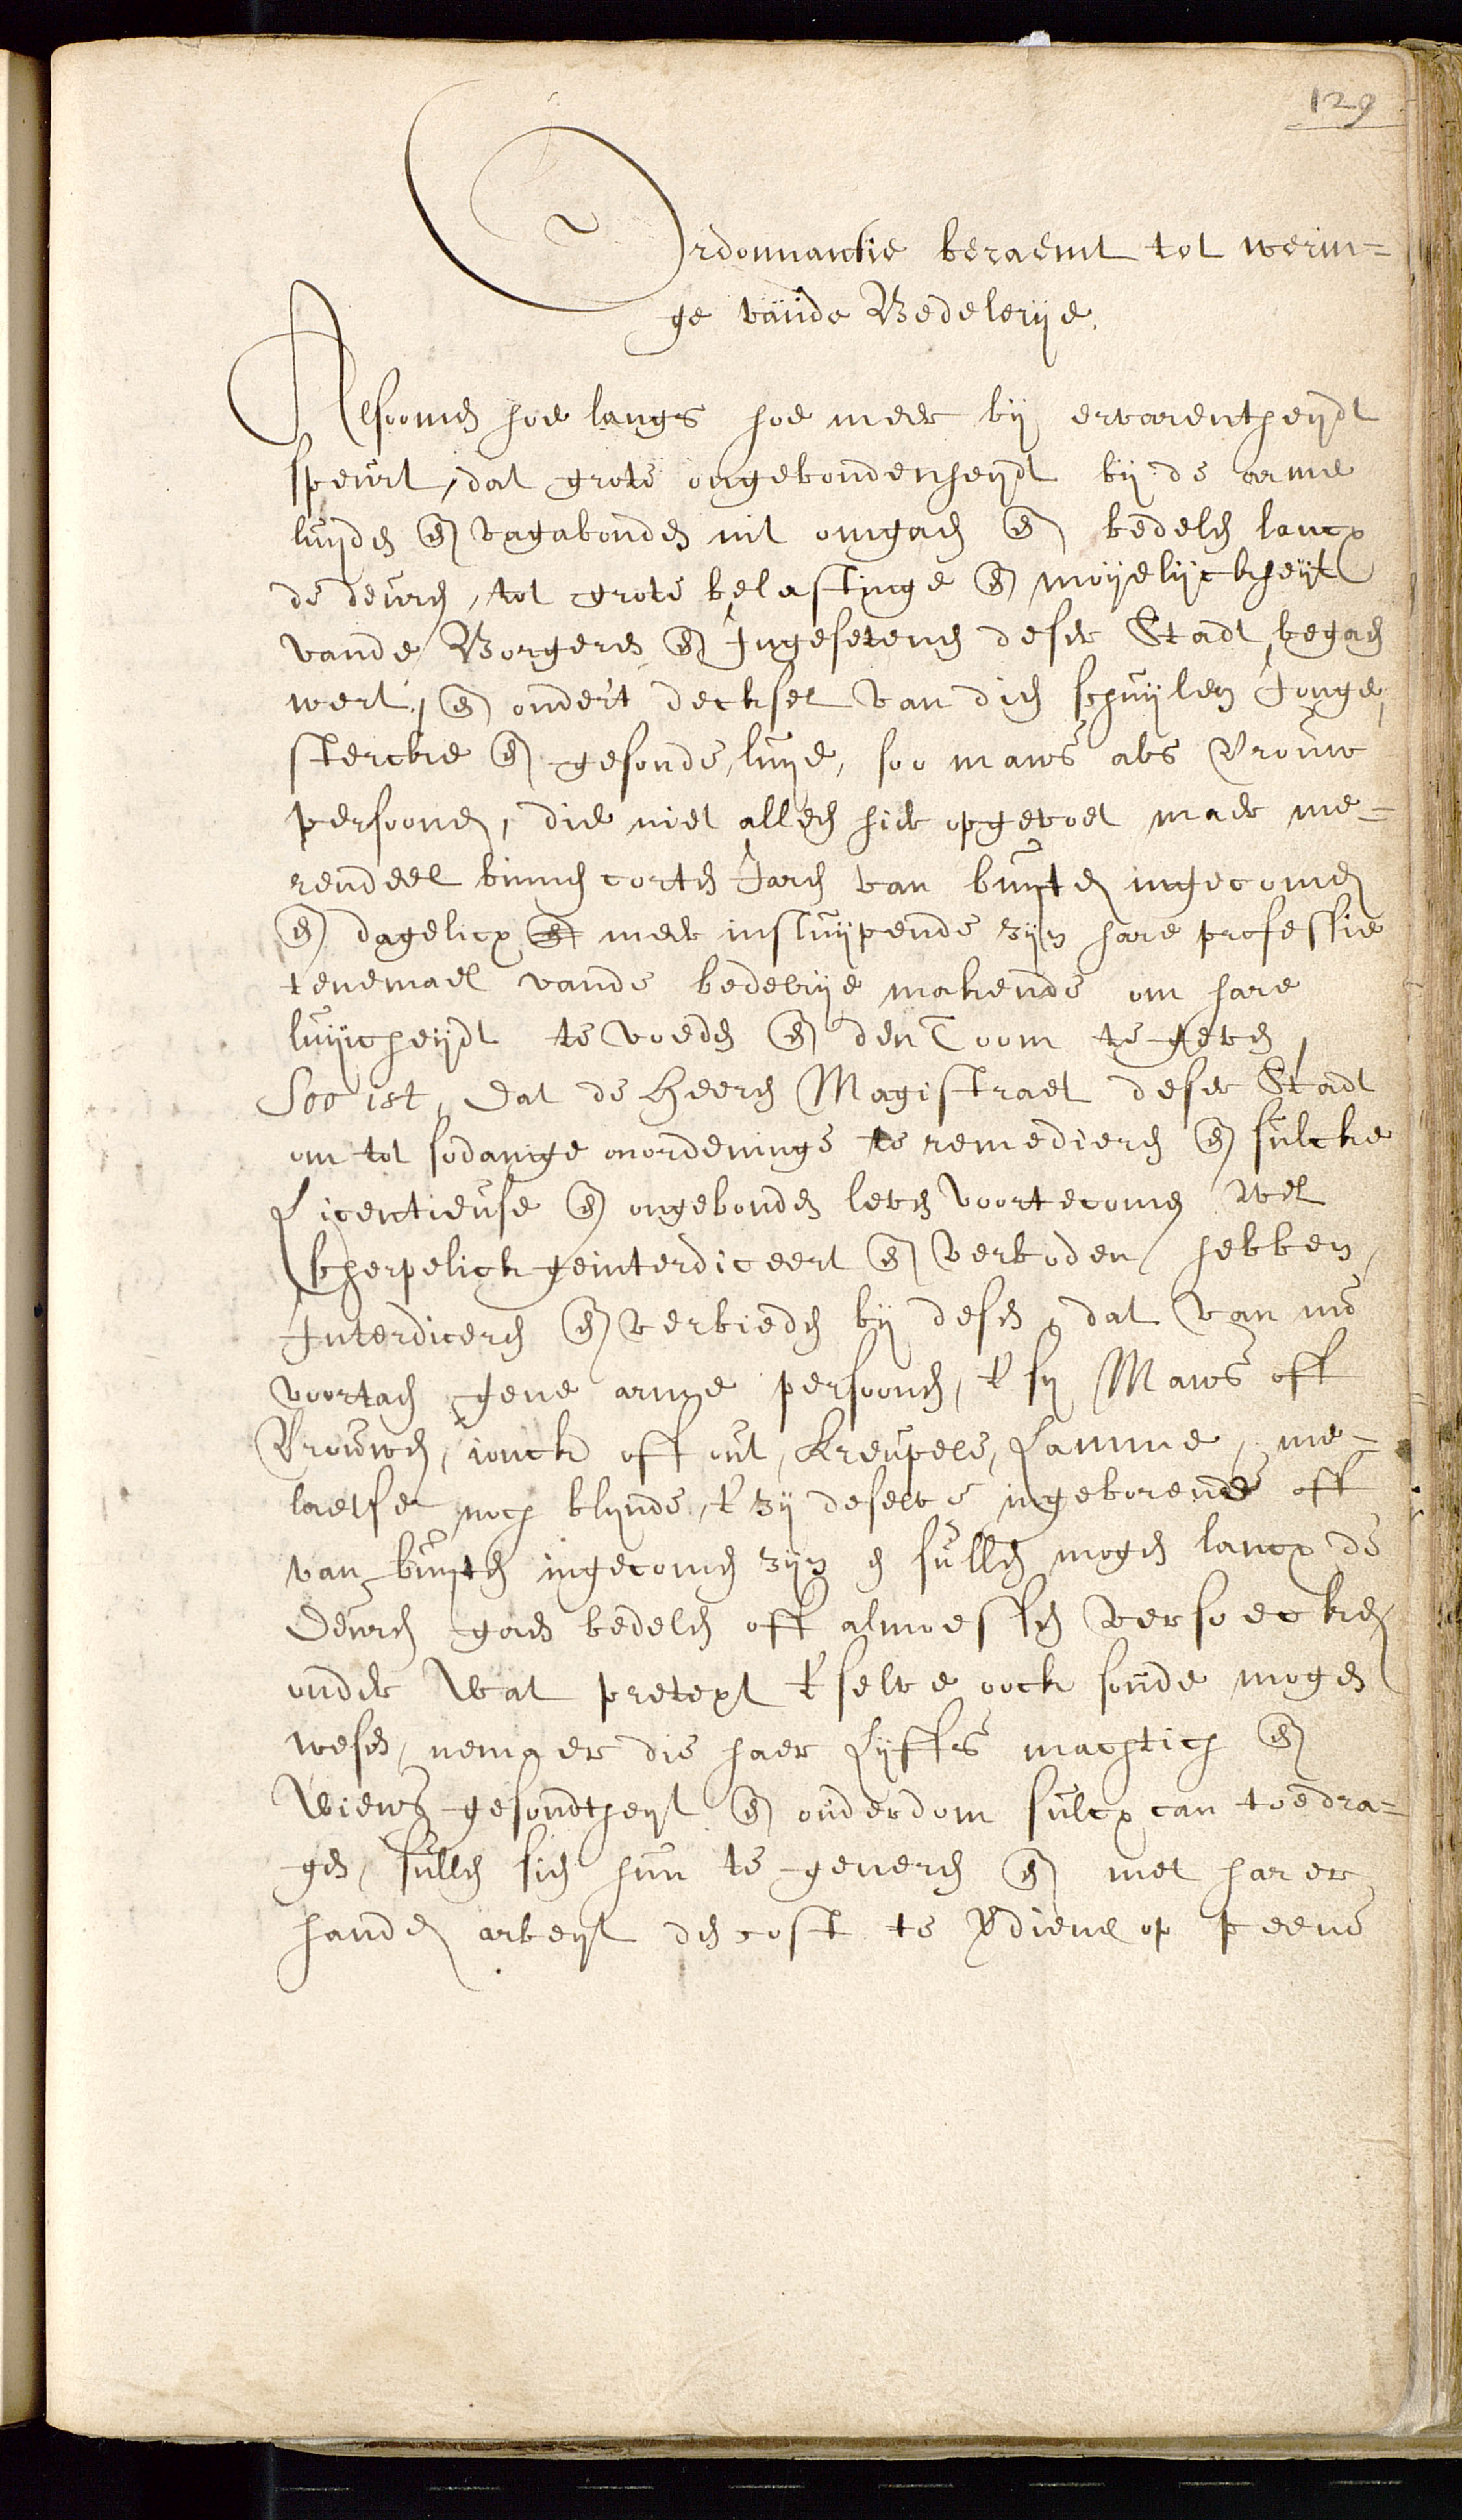 129
Ordonnantie beraemt tot werin=
ge vande Bedelerije.
Alsoomen hoe langs hoe meer bij ervarentheijdt
speurt, dat grote ongebondenheijdt bij de arme
luijden en vagabonden int omgaen en bedelen lancx
de deuren, tot grote belastinge en moijelijckheijt
vande Borgeren en Ingesetenen deser Stadt begaen
wert, en ondert decksel van dien schuijlen Jonge,
stercke en gesonde, luije, soo mans als Vrouw
persoonen, die niet alleen hier opgevoet maer me=
rendeel binnen corten Jaren van buijten ingecomen
en dagelicx meer insluijpende zijn hare professie
tenemael vande bedelrije makende om hare
luijicheijdt te voeden en den Toom te geven,
Soo ist, dat de Heeren Magistraet deser Stadt
om tot sodanige onordeninge te remedieren en sulcke
Licentieuse en ongebonden leven voortecomen wel
scherpelick geinterdiceert en verboden hebben,
Interdiceren en verbieden bij desen, dat van nu
voortaen gene arme persoonen, t' sij Mans off
Vrouwen, jonck off out, Kreupele, Lamme, me=
laetse noch blijnde, t' zij deselve ingeborende off
van buijten ingecomen zijn en sullen mogen lancx de
Deuren gaen bedelen off almoessen versoecken
onder wat pretext t' selve oock soude mogen
wesen, nemaer die haer Lijffs machtich en
wiens gesontheijt en ouderdom sulcx can toedra=
gen, sullen sien hun te generen en met harer
handen arbeijt den cost te vdiene op peene